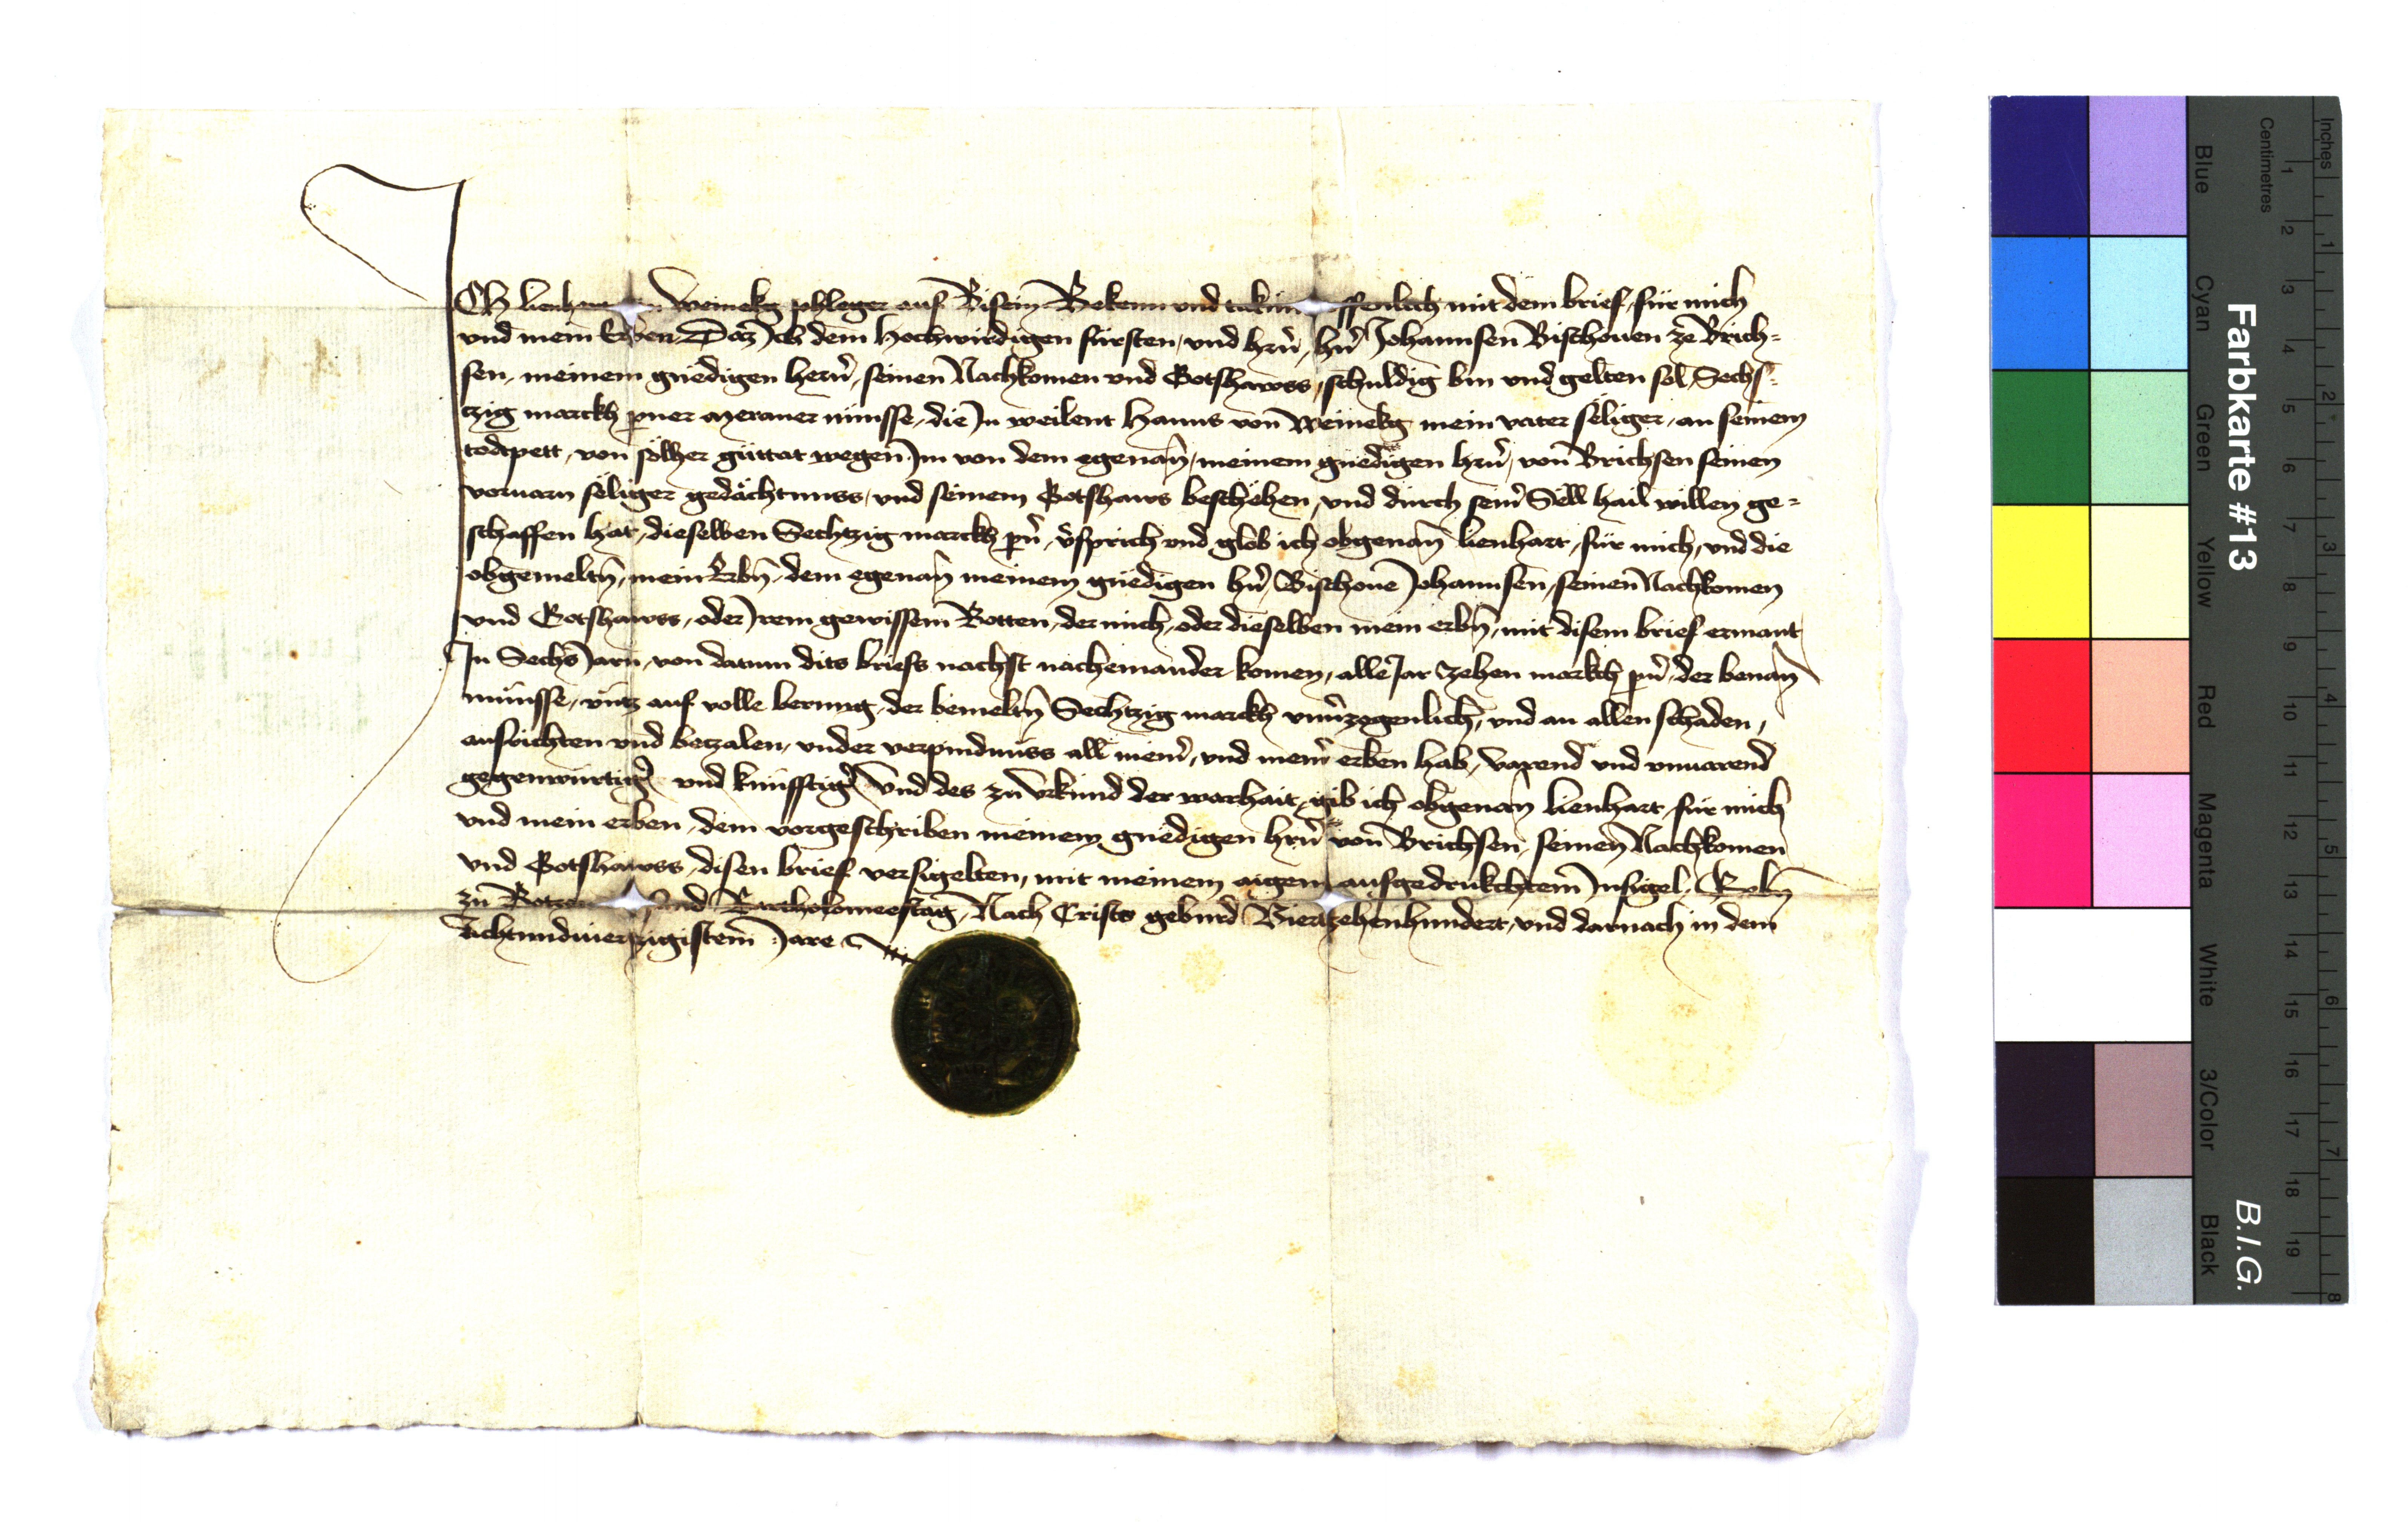 ICh lienh von weinekg phleger auf Visein Bekenn und tu kun offenlich mit dem brief, für mich
und mein Erben Daz Ich dem Hochwirdigen fürsten, und hrn, hrn Johannsen Bischouen ze Brich=
sen, meinem gnedigen herrn, seinen Nachkomen und Gotshawss, schuldig bin und gelten sol, Sechs=
tzig marckh perner meraner münsse, die In weilent Hanns von Weinekg mein vater seliger, an seinem
todtpett, von solher guttat wegen Im von dem egenan, meinem gnedigen hrn, von Brichsen seinen
voruarn seliger gedächtnuss, und seinem Gotshaws beschehen, und durch seinr Sell hail willen ge=
schaffen hat, dieselben Sechtzig marckh pn, vsprich und glob ich obgenan lienhart, für mich, und die
obgemeltn, mein Erbn, dem egenan meinem gnedigen hrn, Bischoue Johannsen, seinen Nachkomen
und Gotshawss, oder Irem gewissem Botten, der mich, oder dieselben mein erbn, mit disem brief ermant
In Sechs Jarn, von datum dits briefs nachst nacheinander komen, alle Jar zehen markh pn, der benan
münsse, untz auf volle berung, der bemeltn Sechtzig marckh unuerzogenlich, und an allen schaden,
ausrichten und betzalen, under verpindnuss all meinr, und meinr erben hab, varend und unuarend
gegenwürtigr und künfftigr Und des zu urkund der warhait, gib ich obgenan lienhart, für mich
und mein erben, dem vorgeschriben meinem gnedigen hrn von Brichsen, seinen Nachkomen
und Gotshawss, disen brief versigelten, mit meinem aigem aufgedrukchtem Insigel, Gebn
zu Botzen Sand Bartholomeestag, Nach Cristo geburd Viertzehenhundert, und darnach in dem
Achtundvierzigistem Jare
Farbkarte #13
B.I.G.
Blue
Cyan
Green
Yellow
Red
Magenta
White
3/Color
Black
Centimetres
Inches
1 2 3 4 5 6 7 8 9 10 11 12 13 14 15 16 17 18 19
1 2 3 4 5 6 7 8